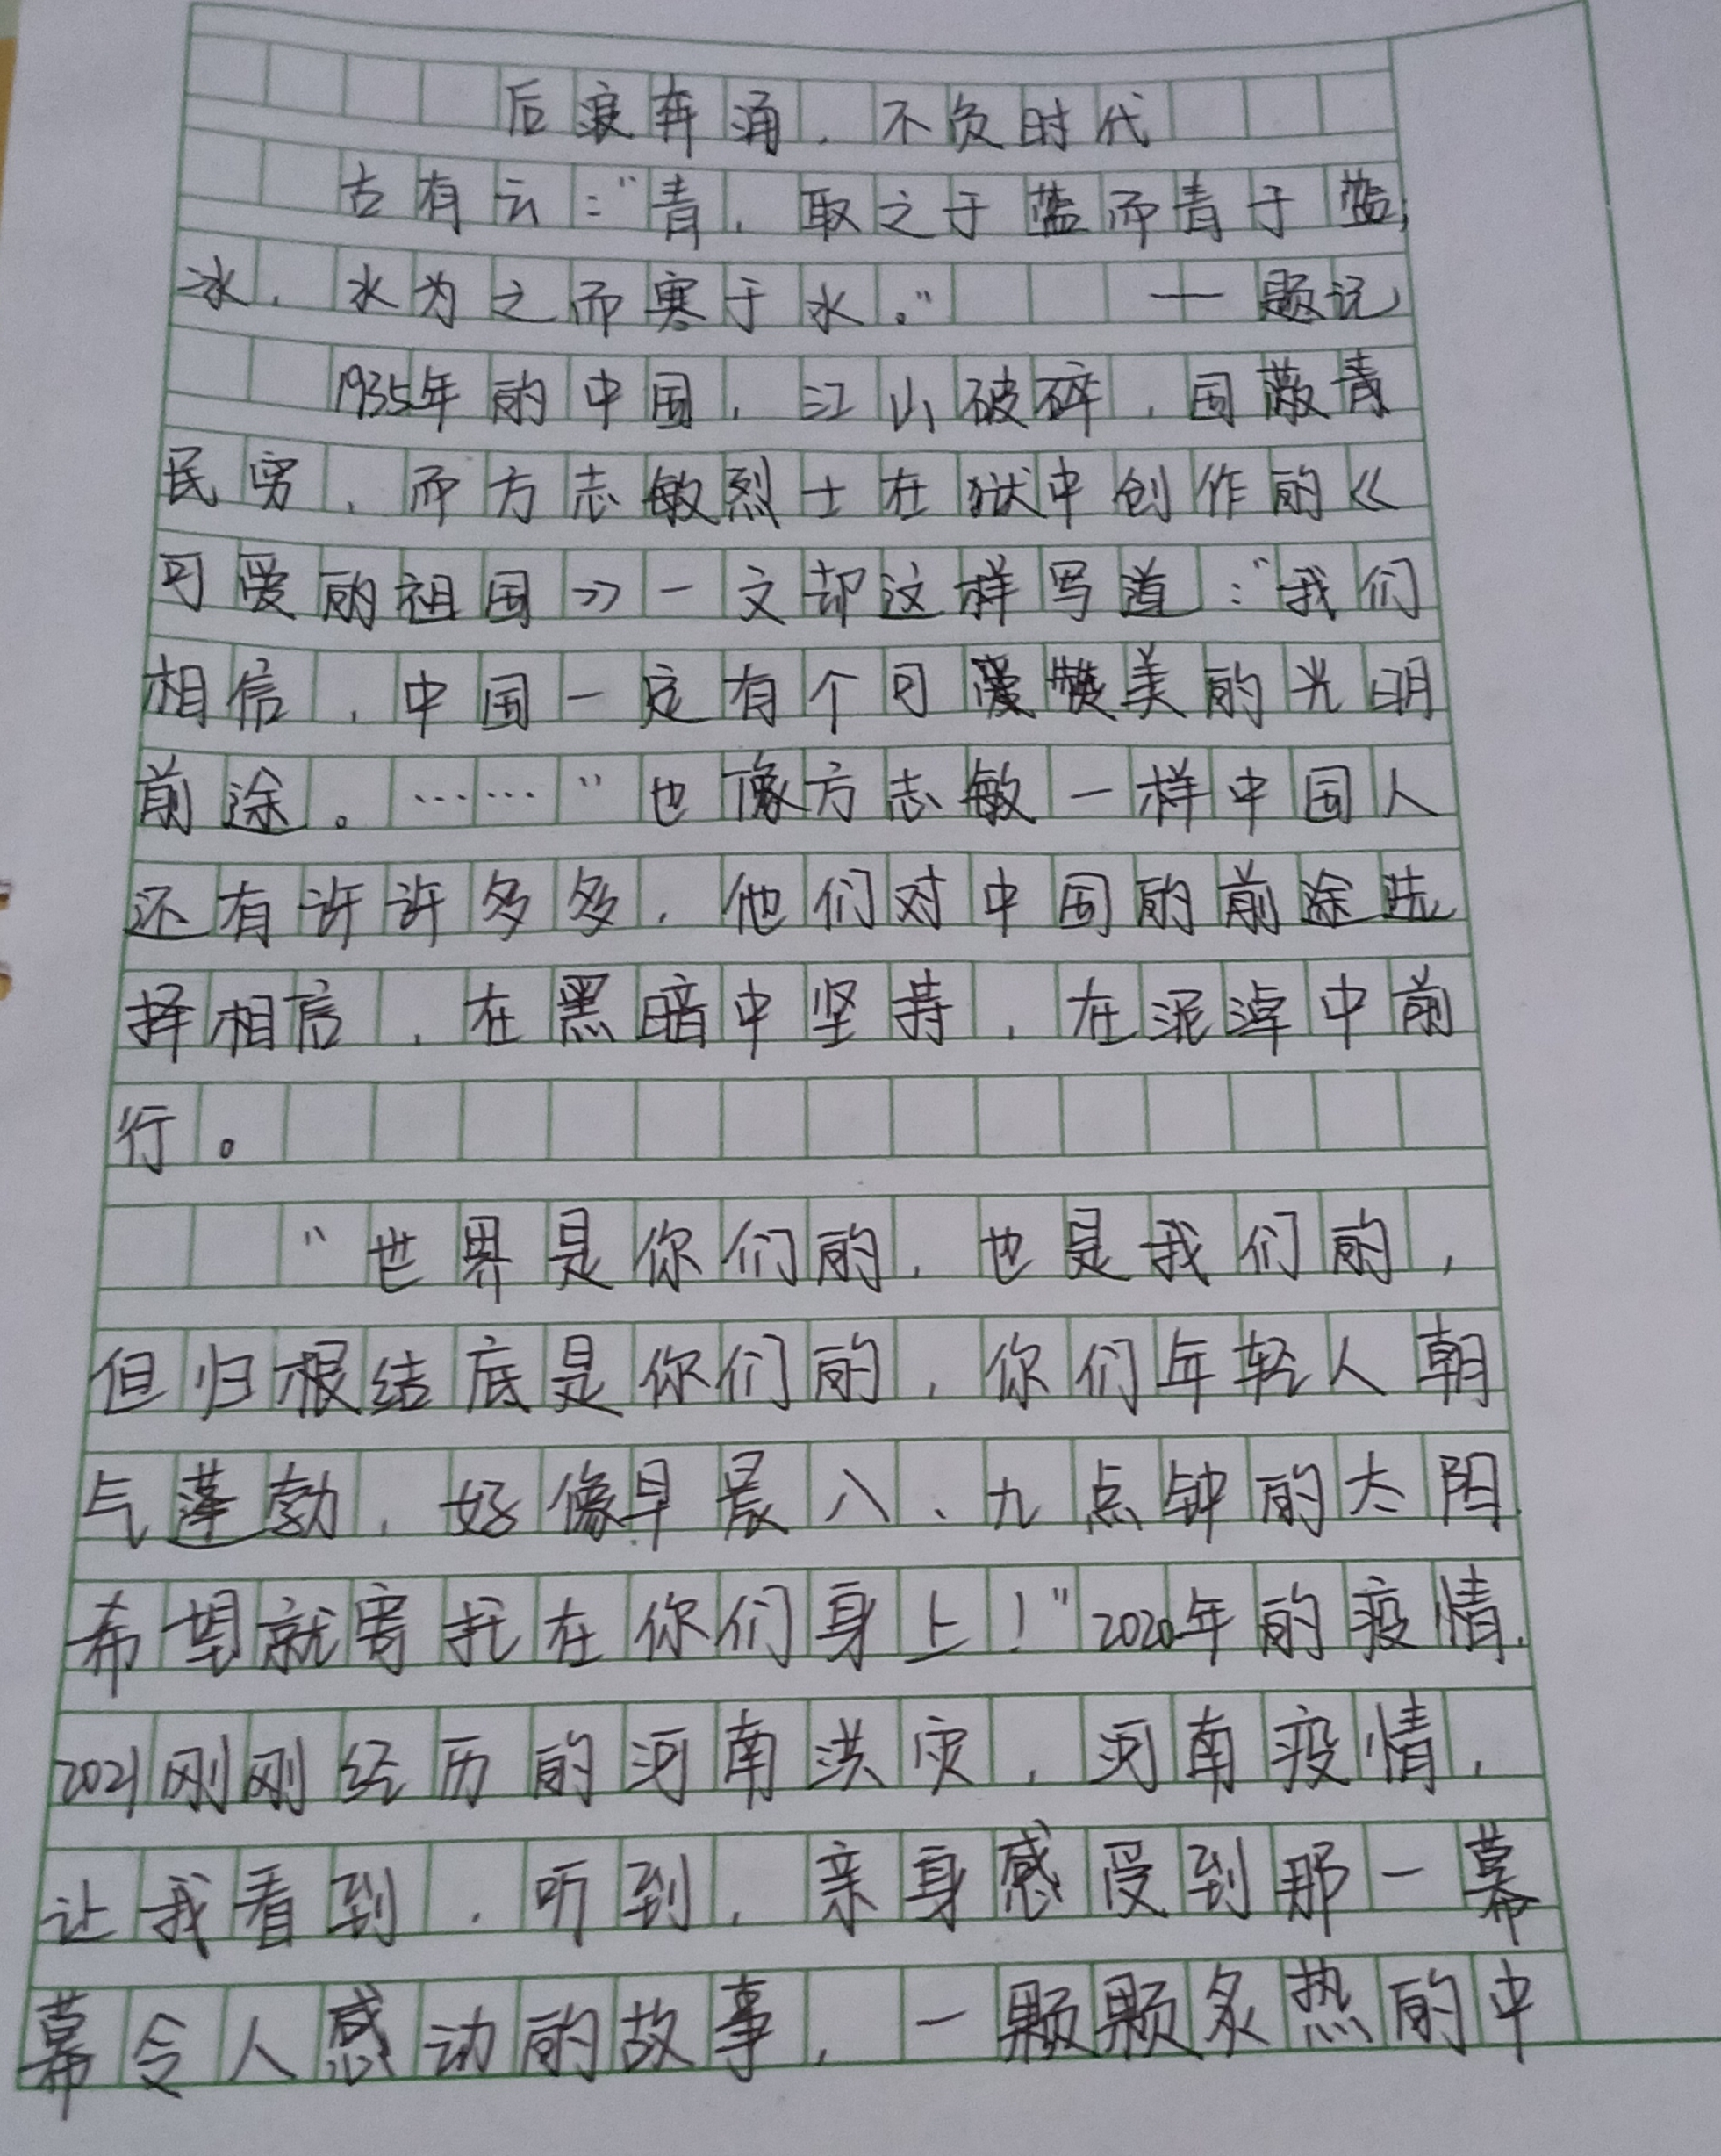 后浪奔涌，不负时代
古有云：“青，取之于蓝而青于蓝；
冰，水为之而寒于水。” ——题记
1935年的中国，江山破碎，国蔽青
民穷，而方志敏烈士在狱中创作的《
可爱的祖国》一文却这样写道：“我们
相信，中国一定有个可爱赞美的光明
前途。……”也像方志敏一样中国人
还有许许多多，他们对中国的前途选
择相信，在黑暗中坚持，在泥淖中前
行。
“世界是你们的，也是我们的，
但归根结底是你们的，你们年轻人朝
气蓬勃，好像早晨八、九点钟的太阳，
希望就寄托在你们身上！”2020年的疫情，
2021刚刚经历的河南洪灾，河南疫情，
让我看到，听到，亲身感受到那一幕
幕令人感动的故事，一颗颗炙热的中